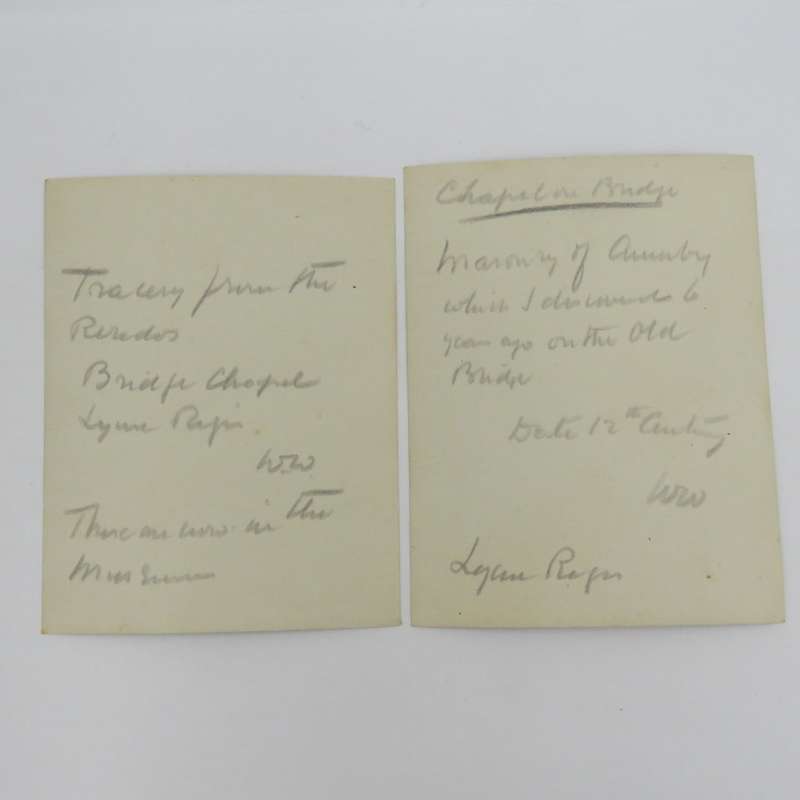 Tracery from the
Reredos
Bridge Chapel
Lyme Regis.
W.W.
These are now in the
Museum
Chapel on Bridge
Masonry of Aumbry
which I discovered 6
years ago on the Old
Bridge
Date 12th Century
WW
Lyme Regis